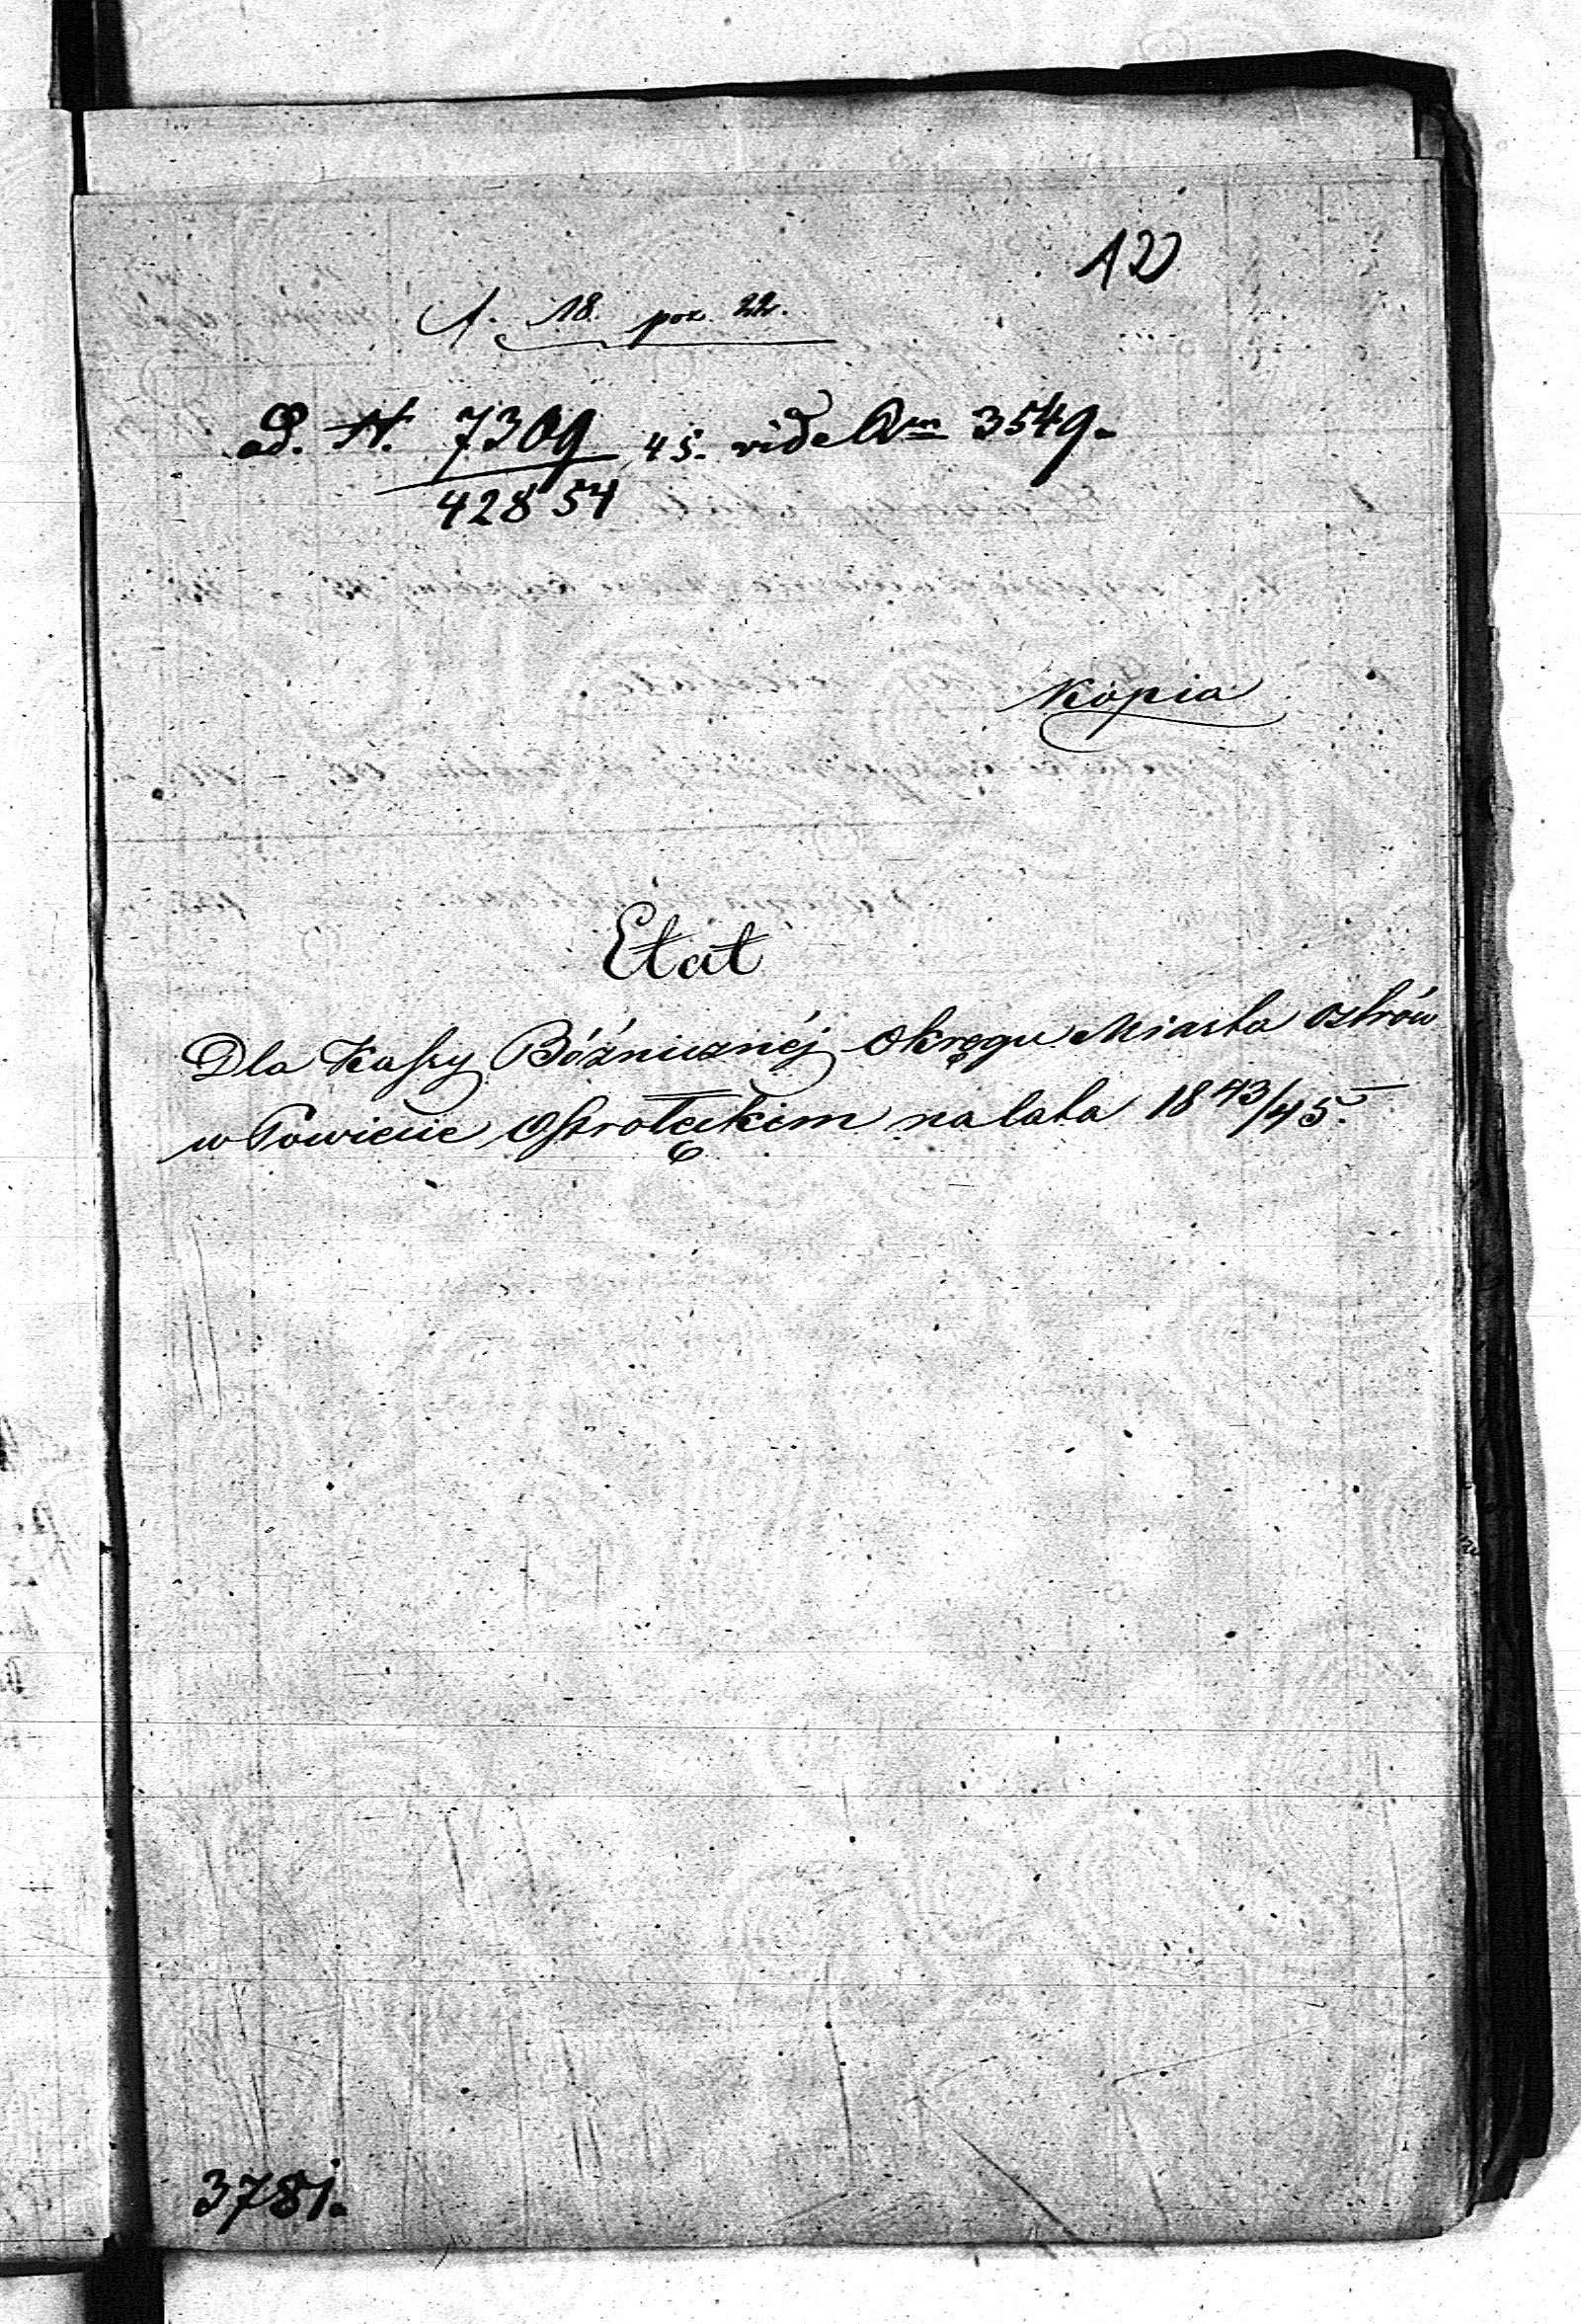 120
A. 18. poz. 22.
ad. N. 7309 45. vide A 3549.
42854
Kopia
Etat
Dla Kassy Bóźnicznéj Okręgu Miasta Ostrów
w Powiecie Ostrołęckim na lata 1843/45.
3781.